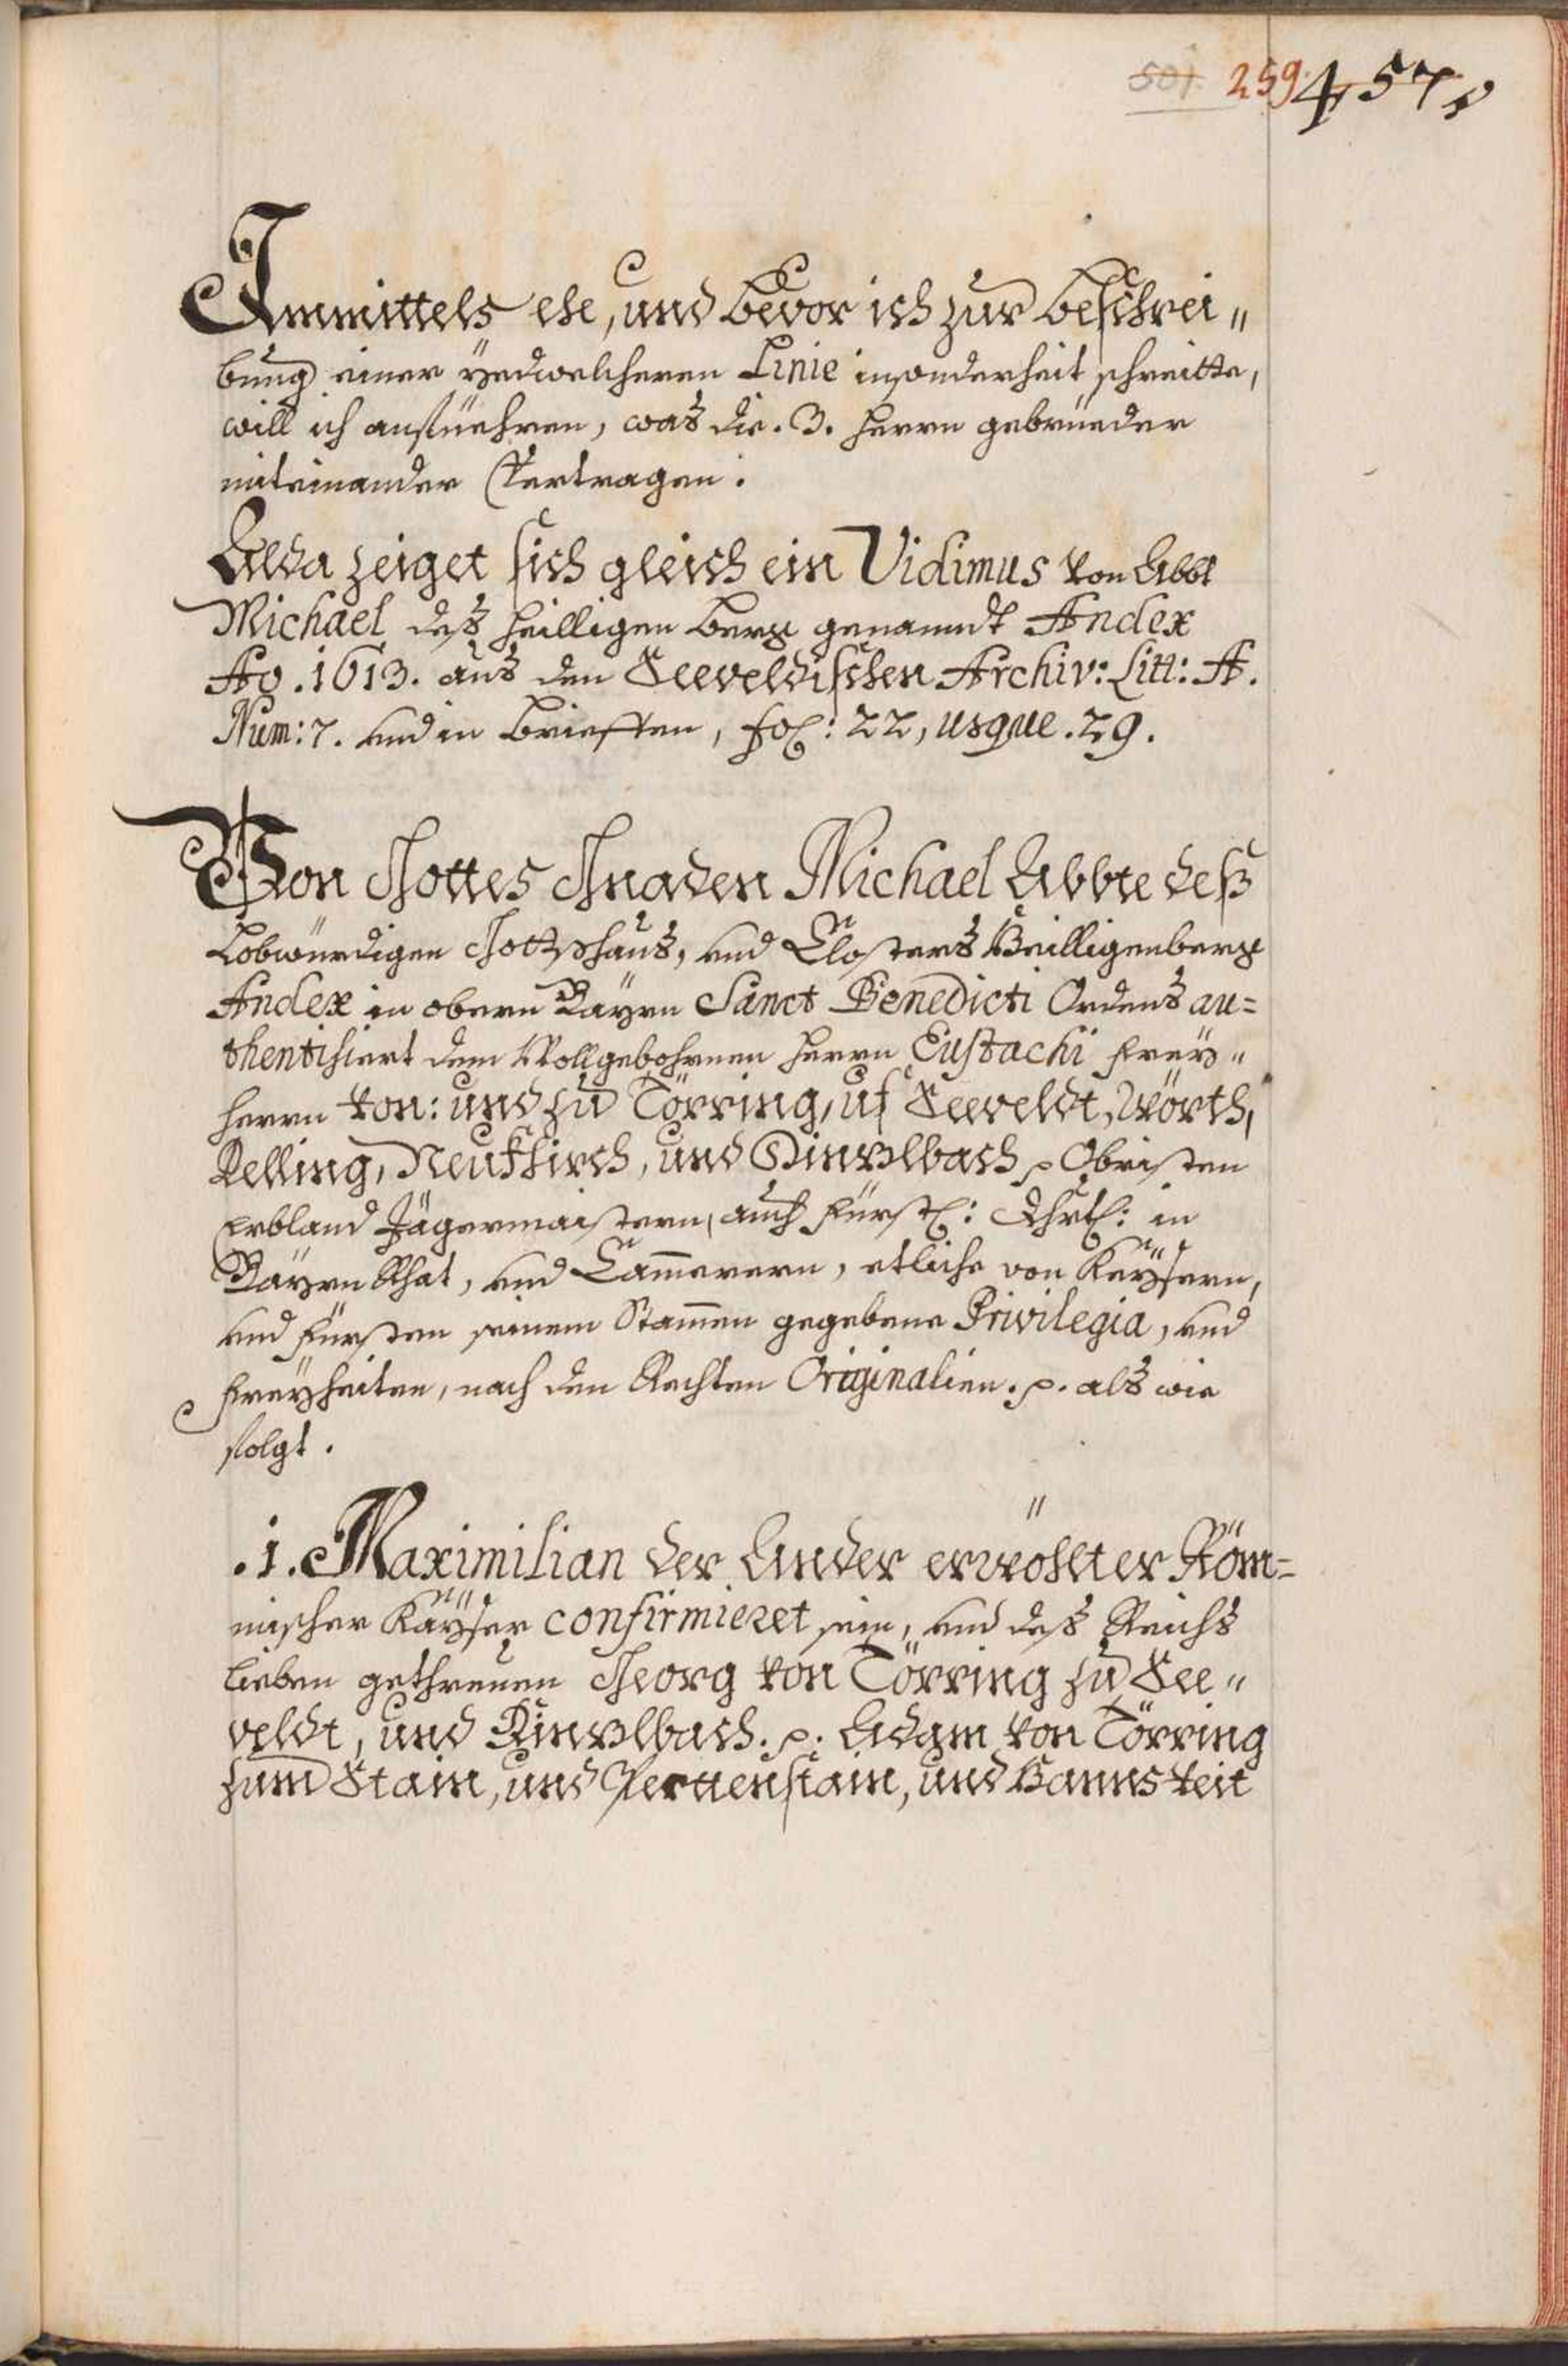 501. 259. 457
Immittels ehe, und bevor ich zur beschrei„
bung einer yedwelcheren Linie insonderheit schreitte,
will ich anfüehren, was die .3. herrn gebrüeder
miteinander Vertragen.
Alda zeiget sich gleich ein Vidimus von Abbt
Michael deß heilligen berg genanndt Andex
Ao .1613. aus den Seeveldischen Archiv: Litt: A.
Num: 7. und in brieffen, fol: 22, usque .29.
Von Gottes Gnaden Michael Abbte deß
Lobwürdigen Gottshaus, und Closters Heilligenberg
Andex in obern Bayrn Sanct Benedicti Ordens au=
thentisiert dem Wollgebohrnen herrn Eustachi frey„
herrn von: und zu Törring, uf Seeveldt, Wörth,
Delling, Neukhirch, und Dinzlbach p Obristen
Erbland Jägermaistern, auch fürstl: Dhrtl: in
Bayrn Rhat, und Cam̅erern, etliche von Kaysern,
und fürsten seinem Stam̅en gegebene Privilegia, und
freyheiten, nach den Rechten Originalien. p. als wie
folgt.
.1. Maximilian der Ander erwöhlter Röm=
mischer Kayser confirmieret sein, und deß Reichs
lieben gethreuen Georg von Törring zu See„
veldt, und Dinzlbach. p. Adam von Törring
zum Stain, und Perttenstain, und Hanns Veit